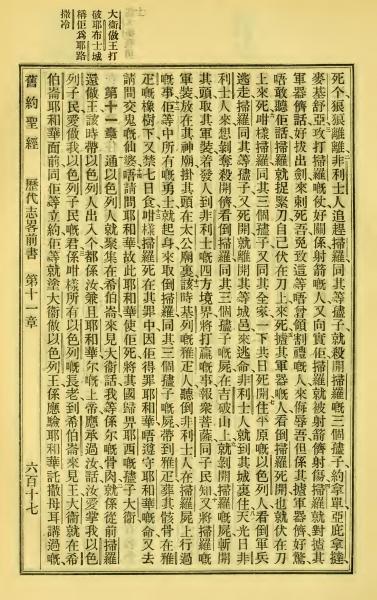 大衞做王打
破耶布士城
稱佢為耶路
撒冷
死个狼狼離離非利士人追趕掃羅同其等孻子就殺開掃羅嘅三個孻子約拿單亞庇拿撻
麥基舒亞攻打掃羅嘅仗好關係射箭嘅人又向實佢掃羅就被射箭儕射傷掃羅就對揸其
軍器儕話好拔出劍來刺死吾免致這等唔曾領割禮嘅人來侮辱吾但係其揸軍器儕好驚
唔敢聽佢話掃羅就捉緊刀自己伏在刀上來死揸其軍器嘅人看倒掃羅死開也就伏在刀
上來死咁樣掃羅同其三個孻子又同其全家一下共日死開住平原嘅以色列人看倒軍兵
逃走掃羅同其等孻子又死開就離開其等城邑來逃命非利士人就到其城裏住天光日非
利士人來想剝奪殺開儕看倒掃羅同其三個孻子嘅屍在吉破山上就剝開掃羅嘅屍斬開
其頭取其軍裝差發人到非利士嘅四方境界將打贏嘅事報衆菩薩同子民知又將掃羅嘅
軍裝放在其神廟掛其頭在太公廟裏該時基列嘅雅疋人聽倒非利士人在掃羅屍上行過
嘅事佢等中所有嘅勇士就起身來取倒掃羅同其三個孻子嘅屍帶到雅疋葬其骸骨在雅
疋嘅橡樹下又禁七日食咁樣掃羅死在其罪中因佢得罪耶和華唔遵守耶和華嘅命又去
請問交鬼嘅仙婆唔請問耶和華故此耶和華使佢死將其國歸畀耶西嘅孻子大衞
第十一章 通以色列人就聚集在希伯崙來見大衞話我等係尔嘅骨肉就係從前掃羅
還做王該時帶以色列人出入个都係汝兼且耶和華尔嘅上帝應承過汝話汝愛掌我以色
列子民愛做我以色列子民嘅君係咁樣所有以色列嘅長老到希伯崙來見王大衞就在希
伯崙耶和華面前同佢等立約佢等就塗大衞做以色列王係應驗耶和華託撒母耳講過嘅
舊約聖經 歷代志畧前書 第十一章 六百十七